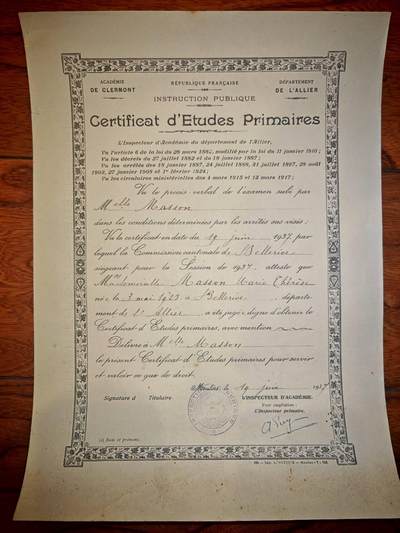 ACADÉMIE
DE CLERMONT
RÉPUBLIQUE FRANÇAISE
DÉPARTEMENT
DE L'ALLIER
INSTRUCTION PUBLIQUE
Certificat d'Etudes Primaires
L'Inspecteur d'Académie du département de l'Allier,
Vu l'article 6 de la loi du 28 mars 1882, modifié par la loi du 11 janvier 1910;
Vu les décrets du 27 juillet 1882 et du 18 janvier 1887;
Vu les arrêtés des 18 janvier 1887, 24 juillet 1888, 31 juillet 1897, 28 août
1902, 27 janvier 1908 et 1er février 1924;
Vu les circulaires ministérielles des 4 mars 1915 et 12 mars 1917;
Vu le procès verbal de l'examen subi par
Melle Masson
dans les conditions déterminées par les arrêtés sus visés;
Vu le certificat en date du 19 juin 1937 par
lequel la Commission cantonale de Bellerive
siégeant pour la Session de 1937 atteste que
Mademoiselle Masson Marie Thérèse
née le 3 mai 1923 à Bellerive départe-
ment de l'Allier a été jugée digne d'obtenir le
Certificat d'Études primaires, avec mention
Délivre à Melle Masson
le présent Certificat d'Etudes primaires pour servir
et valoir ce que de droit.
Moulins, le 19 juin 1937
Signature du Titulaire
L'INSPECTEUR D'ACADÉMIE
Pour ampliation:
L'Inspecteur primaire,
(1) Nom et prénoms.